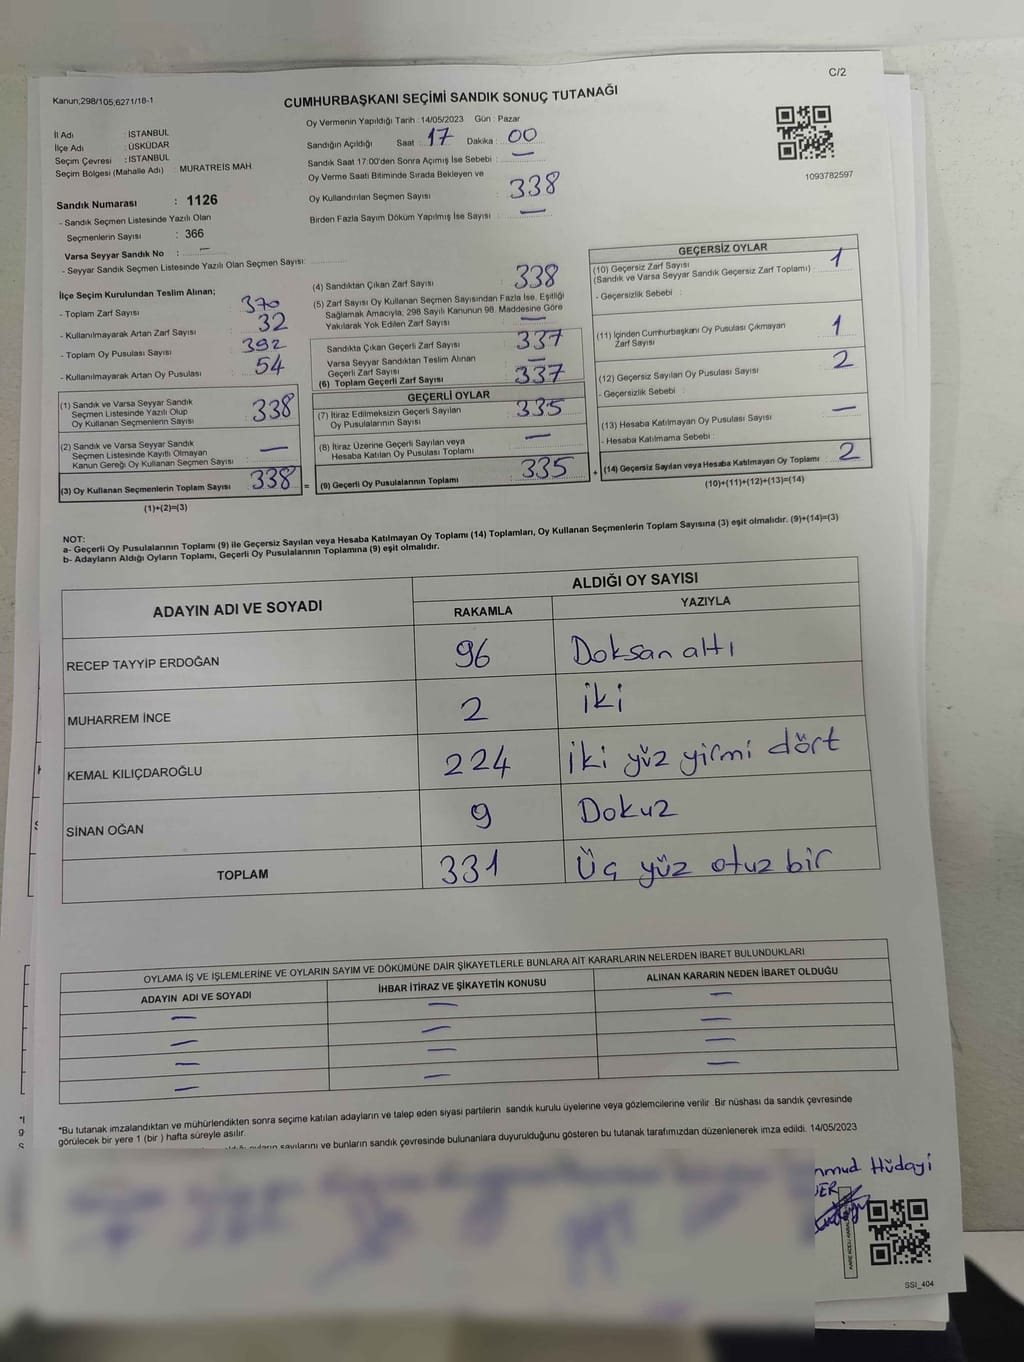 C/2
Kanun,298/105,6271/18-1
CUMHURBAŞKANI SEÇİMİ SANDIK SONUÇ TUTANAĞI
İl Adı : İSTANBUL
İlçe Adı : ÜSKÜDAR
Seçim Çevresi : İSTANBUL
Seçim Bölgesi (Mahalle Adı) : MURATREİS MAH.
Sandık Numarası : 1126
- Sandık Seçmen Listesinde Yazılı Olan
Seçmenlerin Sayısı : 366
Varsa Seyyar Sandık No : —
- Seyyar Sandık Seçmen Listesinde Yazılı Olan Seçmen Sayısı:
Oy Vermenin Yapıldığı Tarih : 14/05/2023 Gün : Pazar
Sandığın Açıldığı Saat : 17 Dakika : 00
Sandık Saat 17:00'den Sonra Açılmış İse Sebebi : —
Oy Verme Saati Bitiminde Sırada Bekleyen ve
Oy Kullandırılan Seçmen Sayısı : 338
Birden Fazla Sayım Döküm Yapılmış İse Sayısı : —
1093782597
İlçe Seçim Kurulundan Teslim Alınan;
- Toplam Zarf Sayısı : 370
- Kullanılmayarak Artan Zarf Sayısı : 32
- Toplam Oy Pusulası Sayısı : 392
- Kullanılmayarak Artan Oy Pusulası : 54
(1) Sandık ve Varsa Seyyar Sandık
Seçmen Listesinde Yazılı Olup
Oy Kullanan Seçmenlerin Sayısı : 338
(2) Sandık ve Varsa Seyyar Sandık
Seçmen Listesinde Kayıtlı Olmayan
Kanun Gereği Oy Kullanan Seçmen Sayısı : —
(3) Oy Kullanan Seçmenlerin Toplam Sayısı : 338
(1)+(2)=(3)
(4) Sandıktan Çıkan Zarf Sayısı : 338
(5) Zarf Sayısı Oy Kullanan Seçmen Sayısından Fazla İse, Eşitliği
Sağlamak Amacıyla; 298 Sayılı Kanunun 98. Maddesine Göre
Yakılarak Yok Edilen Zarf Sayısı : —
Sandıkta Çıkan Geçerli Zarf Sayısı : 337
Varsa Seyyar Sandıktan Teslim Alınan
Geçerli Zarf Sayısı : —
(6) Toplam Geçerli Zarf Sayısı : 337
GEÇERLİ OYLAR
(7) İtiraz Edilmeksizin Geçerli Sayılan
Oy Pusulalarının Sayısı : 335
(8) İtiraz Üzerine Geçerli Sayılan veya
Hesaba Katılan Oy Pusulası Toplamı : —
= (9) Geçerli Oy Pusulalarının Toplamı : 335
GEÇERSİZ OYLAR
(10) Geçersiz Zarf Sayısı
(Sandık ve Varsa Seyyar Sandık Geçersiz Zarf Toplamı) : 1
- Geçersizlik Sebebi :
(11) İçinden Cumhurbaşkanı Oy Pusulası Çıkmayan
Zarf Sayısı : 1
(12) Geçersiz Sayılan Oy Pusulası Sayısı : 2
- Geçersizlik Sebebi :
(13) Hesaba Katılmayan Oy Pusulası Sayısı : —
- Hesaba Katılmama Sebebi :
+ (14) Geçersiz Sayılan veya Hesaba Katılmayan Oy Toplamı : 2
(10)+(11)+(12)+(13)=(14)
NOT:
a- Geçerli Oy Pusulalarının Toplamı (9) ile Geçersiz Sayılan veya Hesaba Katılmayan Oy Toplamı (14) Toplamları, Oy Kullanan Seçmenlerin Toplam Sayısına (3) eşit olmalıdır. (9)+(14)=(3)
b- Adayların Aldığı Oyların Toplamı, Geçerli Oy Pusulalarının Toplamına (9) eşit olmalıdır.
ADAYIN ADI VE SOYADI
ALDIĞI OY SAYISI
RAKAMLA YAZIYLA
RECEP TAYYİP ERDOĞAN 96 Doksan altı
MUHARREM İNCE 2 iki
KEMAL KILIÇDAROĞLU 224 iki yüz yirmi dört
SİNAN OĞAN 9 Dokuz
TOPLAM 331 Üç yüz otuz bir
OYLAMA İŞ VE İŞLEMLERİNE VE OYLARIN SAYIM VE DÖKÜMÜNE DAİR ŞİKAYETLERLE BUNLARA AİT KARARLARIN NELERDEN İBARET BULUNDUKLARI
ADAYIN ADI VE SOYADI İHBAR İTİRAZ VE ŞİKAYETİN KONUSU ALINAN KARARIN NEDEN İBARET OLDUĞU
— — —
— — —
— — —
— — —
*Bu tutanak imzalandıktan ve mühürlendikten sonra seçime katılan adayların ve talep eden siyasi partilerin sandık kurulu üyelerine veya gözlemcilerine verilir .Bir nüshası da sandık çevresinde
görülecek bir yere 1 (bir ) hafta süreyle asılır.
sayılarını ve bunların sandık çevresinde bulunanlara duyurulduğunu gösteren bu tutanak tarafımızdan düzenlenerek imza edildi. 14/05/2023
Hüdayi
SSI_404